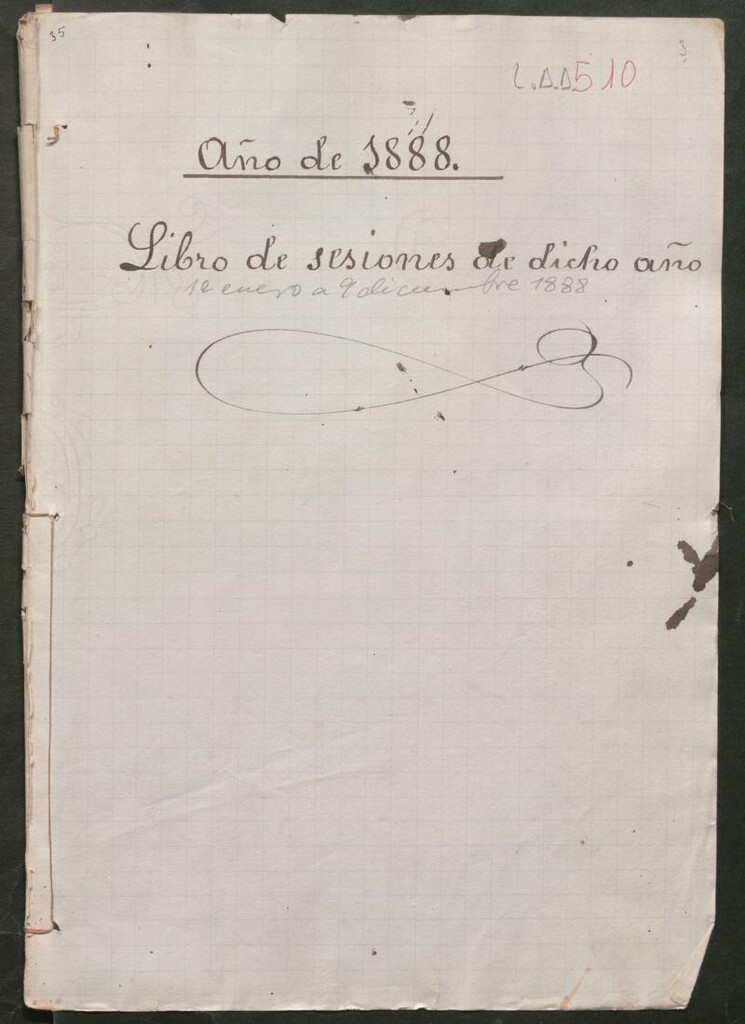 35
3
L.A.A 510
Año de 1888.
Libro de sesiones de dicho año
1º enero a 9 diciembre 1888